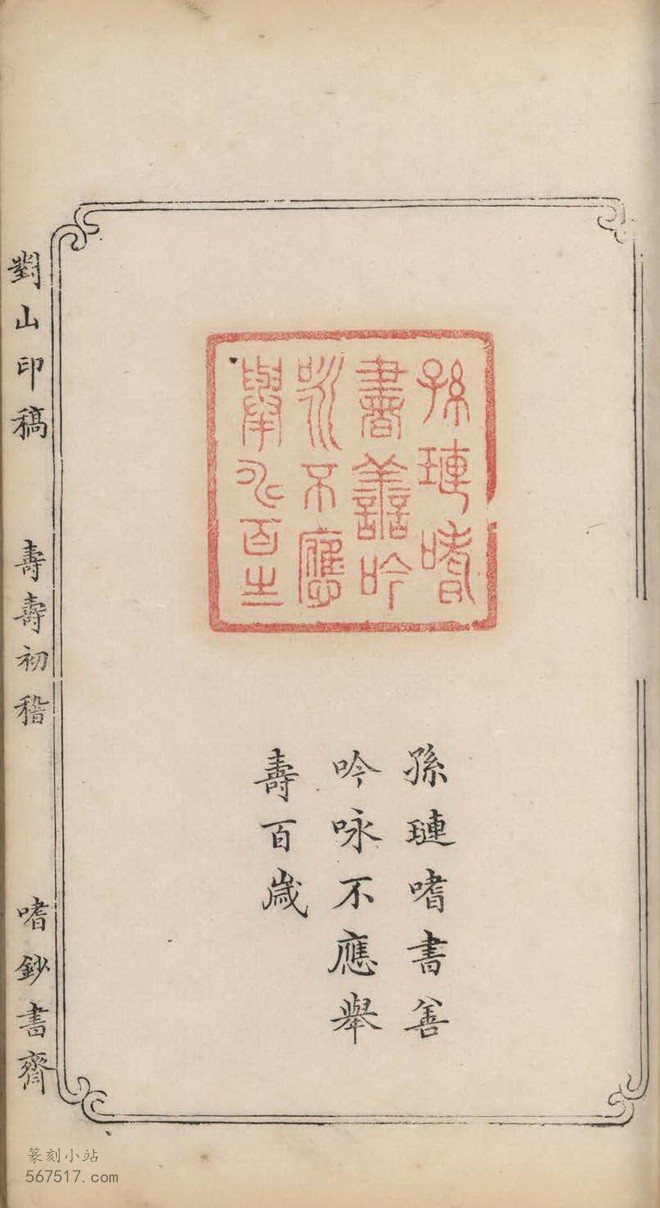 孫璉嗜
書善吟
咏不應
舉百
孫璉嗜書善
吟咏不應舉
壽百歲
對山印稿 壽壽初稽 嗜鈔書齋
篆刻小站
567517.com